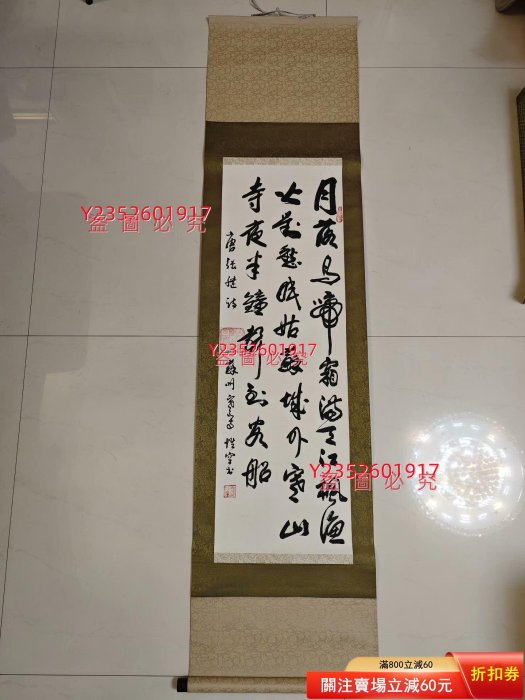 月落烏啼霜滿天江楓漁
火對愁眠姑蘇城外寒山
寺夜半鐘聲到客船
唐張繼詩
蘇州寒山寺性空书
Y2352601917
盗圖必究
Y2352601917
盗圖必究
Y2352601917
盗圖必究
滿800立減60
關注賣場立減60元
折扣券